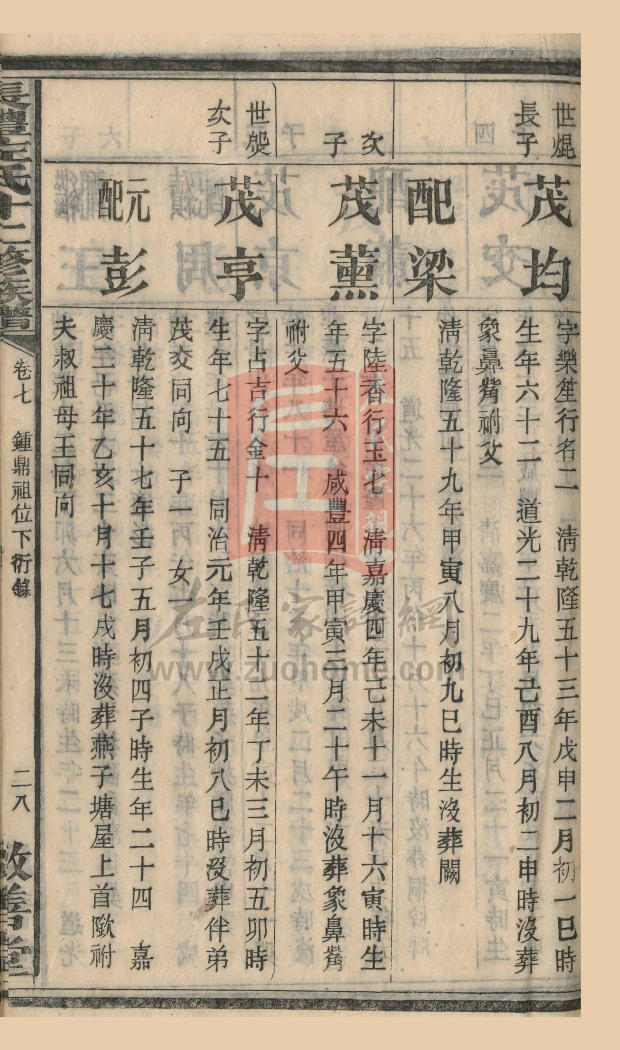 世焜
長子
茂均
字樂笙行名二　清乾隆五十三年戊申二月初一巳時
生年六十二　道光二十九年己酉八月初二申時沒葬
象鼻觜祔父
配梁
清乾隆五十九年甲寅八月初九巳時生沒葬闕
次
子
茂薰
字陸香行玉七　清嘉慶四年己未十一月十六寅時生
年五十六　咸豐四年甲寅三月二十午時沒葬象鼻觜
祔父
次子
茂亨
字占吉行金十　清乾隆五十二年丁未三月初五卯時
生年七十五　同治元年壬戌正月初八巳時沒葬伴弟
茂交同向　子一　女一
元配彭
清乾隆五十七年壬子五月初四子時生年二十四　嘉
慶二十年乙亥十月十七戌時沒葬燕子塘屋上首隥祔
夫叔祖母王同向
長澧左氏十二修族譜
卷七　鍾鼎祖位下衍錄
二八
敦善堂
左氏家譜網
www.zuohome.com